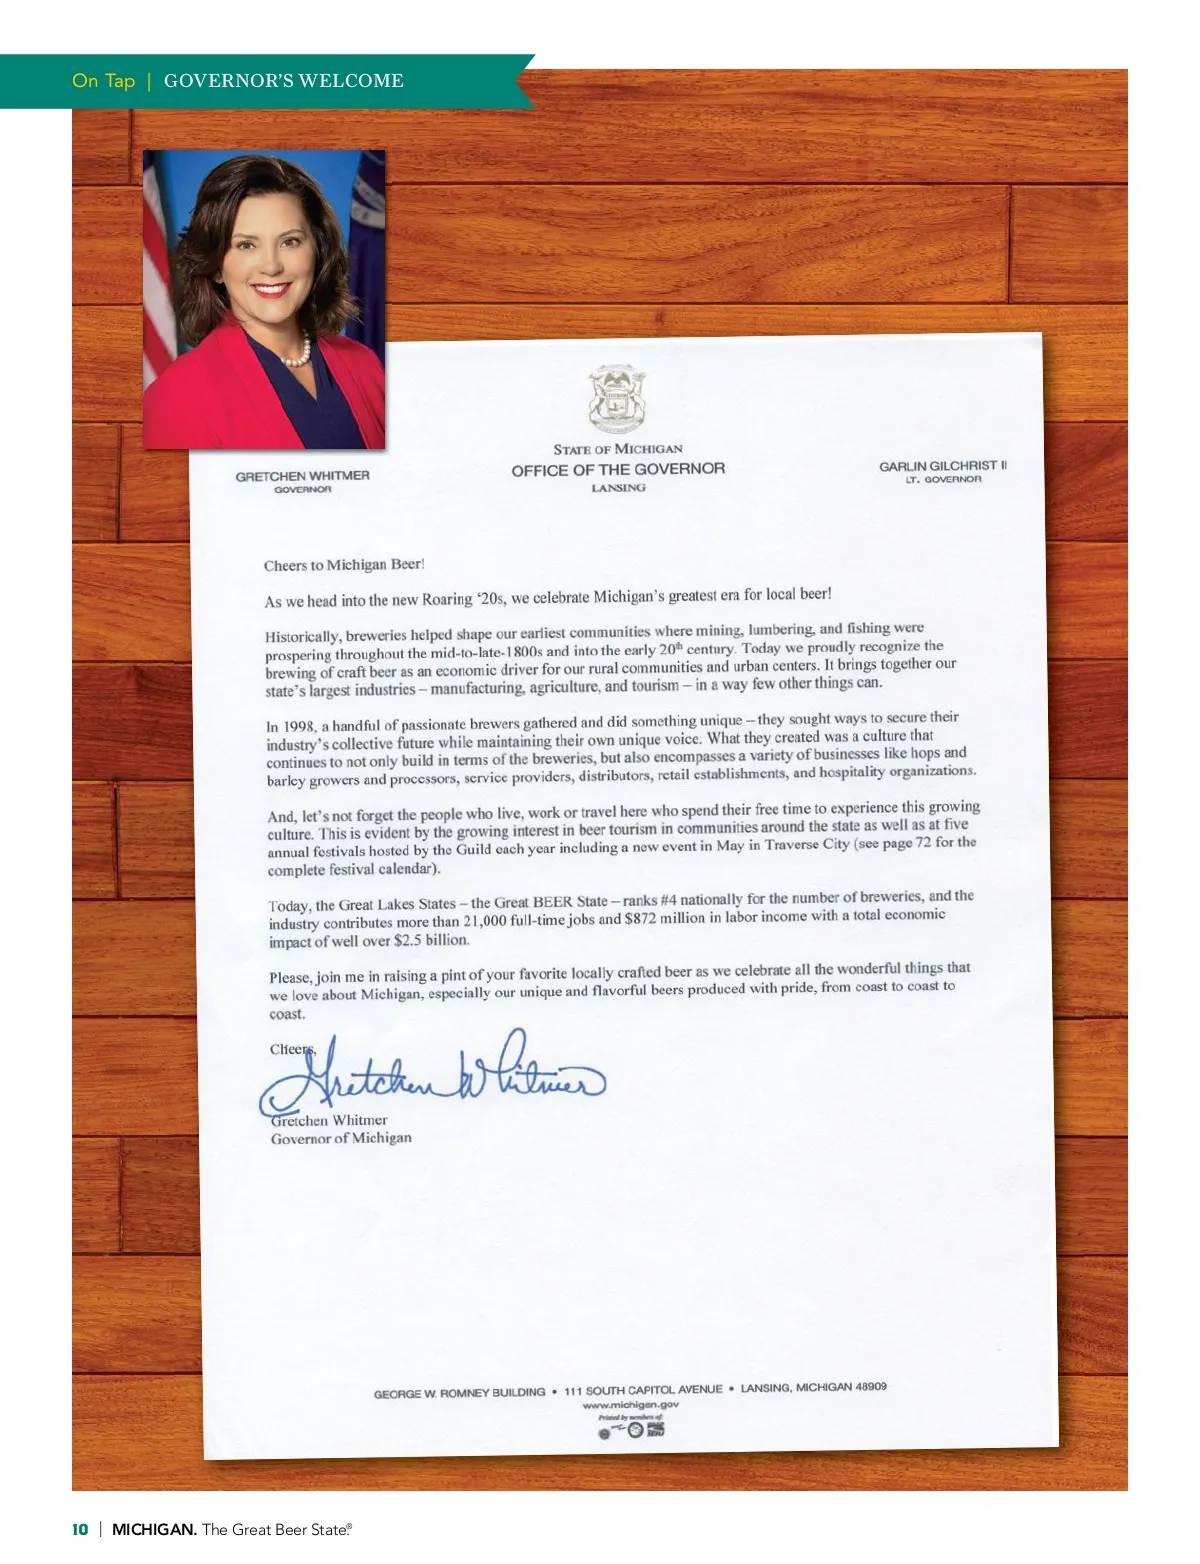 On Tap | GOVERNOR'S WELCOME
STATE OF MICHIGAN
OFFICE OF THE GOVERNOR
LANSING
GRETCHEN WHITMER
GOVERNOR
GARLIN GILCHRIST II
LT. GOVERNOR
Cheers to Michigan Beer!
As we head into the new Roaring ‘20s, we celebrate Michigan’s greatest era for local beer!
Historically, breweries helped shape our earliest communities where mining, lumbering, and fishing were
prospering throughout the mid-to-late-1800s and into the early 20th century. Today we proudly recognize the
brewing of craft beer as an economic driver for our rural communities and urban centers. It brings together our
state’s largest industries – manufacturing, agriculture, and tourism – in a way few other things can.
In 1998, a handful of passionate brewers gathered and did something unique – they sought ways to secure their
industry’s collective future while maintaining their own unique voice. What they created was a culture that
continues to not only build in terms of the breweries, but also encompasses a variety of businesses like hops and
barley growers and processors, service providers, distributors, retail establishments, and hospitality organizations.
And, let’s not forget the people who live, work or travel here who spend their free time to experience this growing
culture. This is evident by the growing interest in beer tourism in communities around the state as well as at five
annual festivals hosted by the Guild each year including a new event in May in Traverse City (see page 72 for the
complete festival calendar).
Today, the Great Lakes States – the Great BEER State – ranks #4 nationally for the number of breweries, and the
industry contributes more than 21,000 full-time jobs and $872 million in labor income with a total economic
impact of well over $2.5 billion.
Please, join me in raising a pint of your favorite locally crafted beer as we celebrate all the wonderful things that
we love about Michigan, especially our unique and flavorful beers produced with pride, from coast to coast to
coast.
Cheers,
Gretchen Whitmer
Gretchen Whitmer
Governor of Michigan
GEORGE W. ROMNEY BUILDING • 111 SOUTH CAPITOL AVENUE • LANSING, MICHIGAN 48909
www.michigan.gov
Printed by members of:
10 | MICHIGAN. The Great Beer State.®